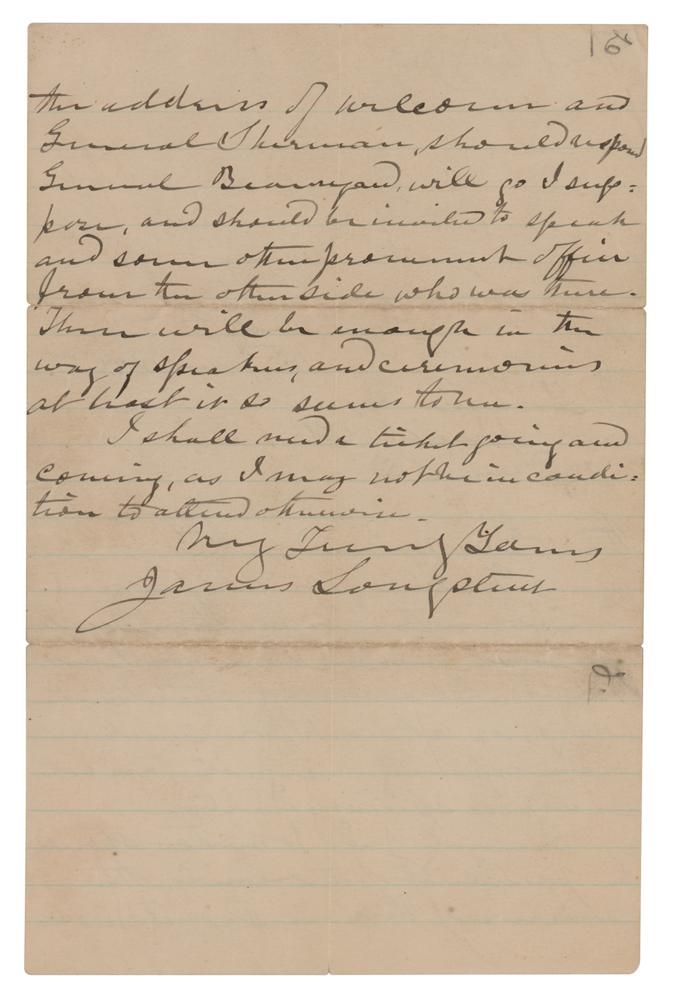 the address of welcome and
General Sherman, should respond
General Beauregard, will go I sup=
pose, and should be invited to speak
and some other prominent officer
from the other side who was there.
There will be enough in the
way of speakers, and ceremonies
at least it so seems to me.
I shall need a ticket going and
coming, as I may not be in condi=
tion to attend otherwise.
Very Truly Yours
James Longstreet